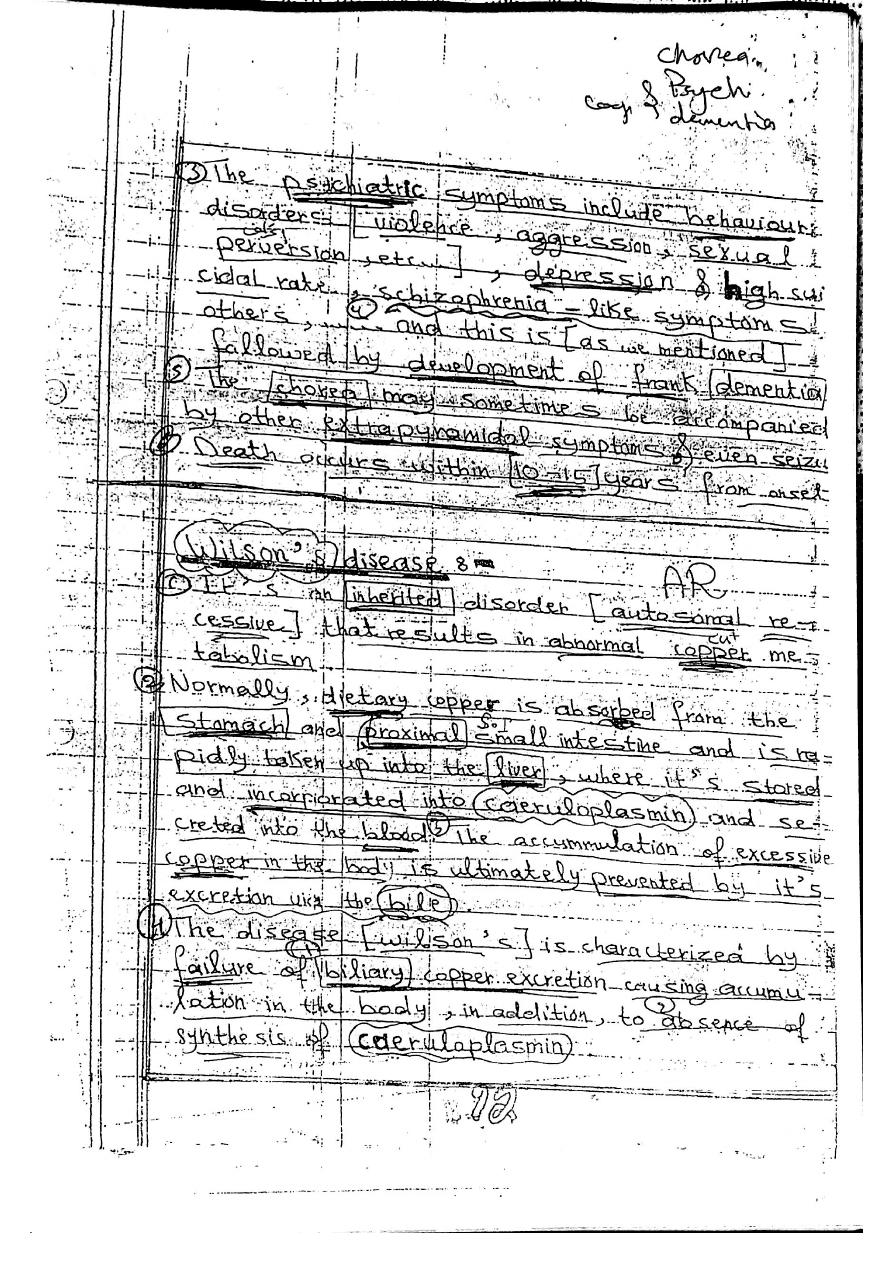 chorea
& Psych.
dementia
③ The psychiatric symptoms include behaviour
disorders [violence, aggression, sexual
perversion, etc...], depression & high sui
cidal rate, schizophrenia-like symptoms
others, ...... ④ and this is [as we mentioned]
followed by development of frank dementia
⑤ The chorea may sometimes be accompanied
by other extrapyramidal symptoms & even seizu
⑥ Death occurs within [10-15] years from onset
Wilson's disease :-
AR
① It's an inherited disorder [autosomal re-
cessive] that results in abnormal copper me-
tabolism
② Normally, dietary copper is absorbed from the
stomach and proximal small intestine and is ra-
pidly taken up into the liver, where it's stored
and incorporated into caeruloplasmin and se-
creted into the blood ③ The accummulation of excessive
copper in the body is ultimately prevented by it's
excretion via the bile.
④ The disease [wilson's] is characterized by
① failure of biliary copper excretion causing accumu-
lation in the body, in addition, to ② absence of
synthesis of caeruloplasmin.